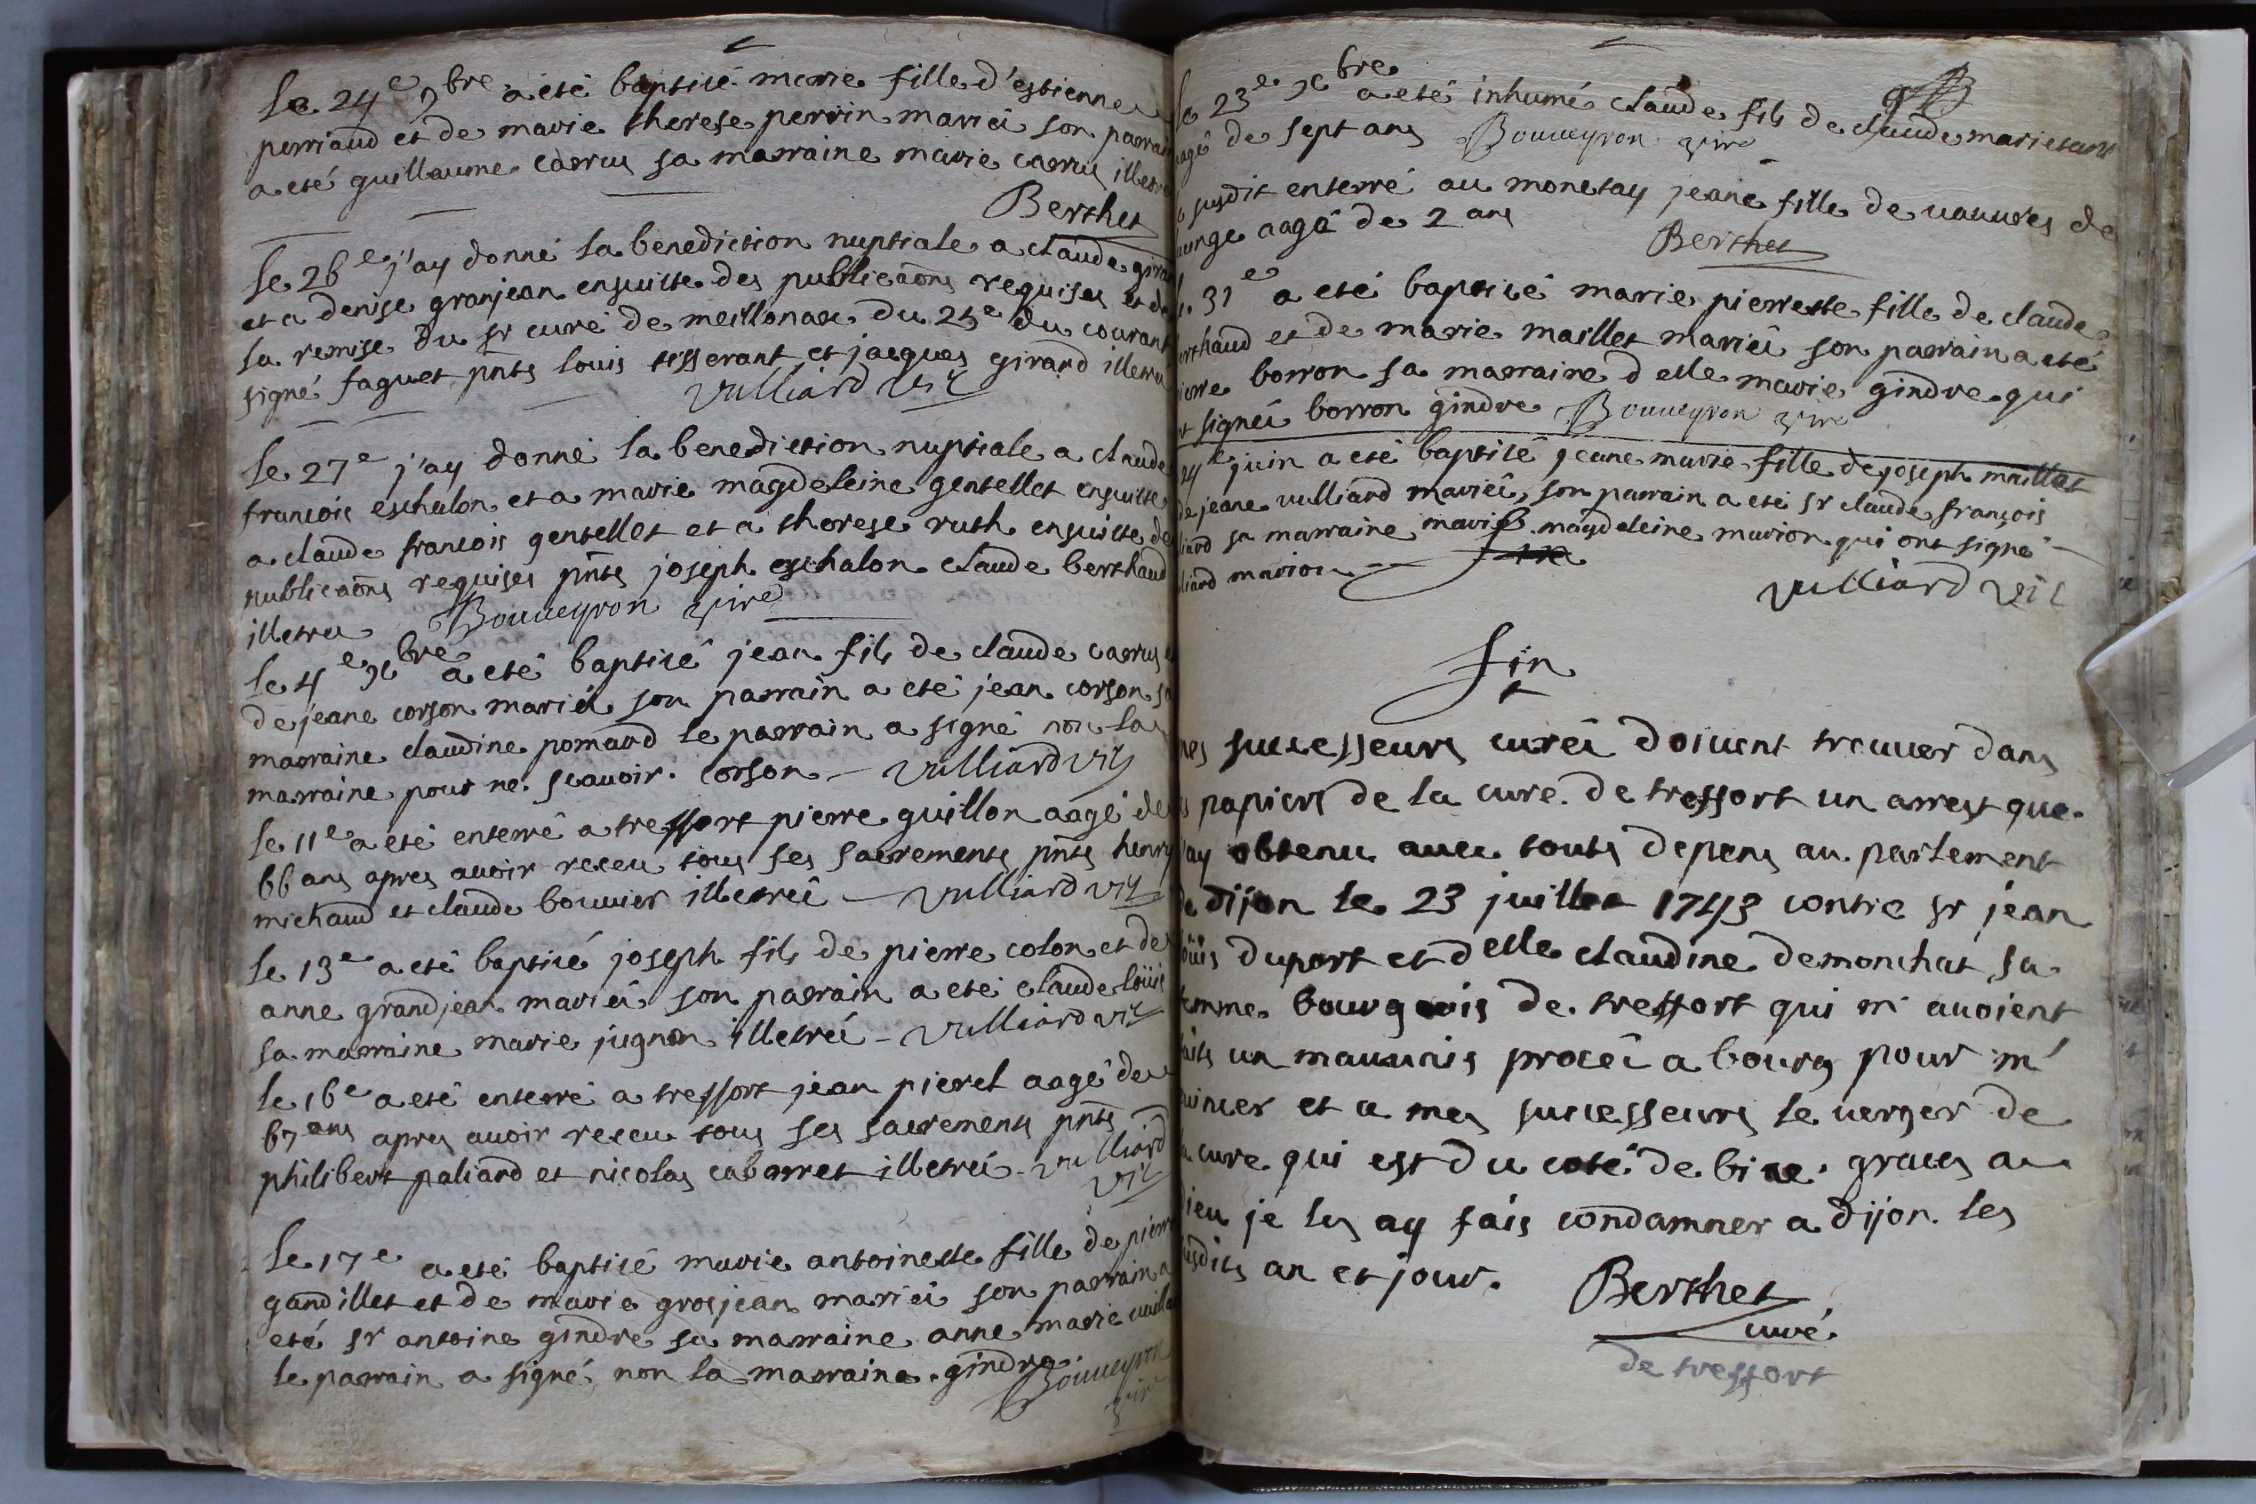 Le 24e 9bre a eté baptisé marie fille d'estienne
perriaud et de marie therese perrin mariéi son parrain
a eté guillaume carrus sa marraine marie carrus illetré
Berthet
Le 26e j'ay donné la benediction nuptiale a claude girar
et a denise granjean ensuitte des publicaõns requises et de
la remise du sr curé de meillonax du 25e du courant
signé faguet pñts louis tisserant et jacques girard illetré
vulliard vic
Le 27e j'ay donné la benediction nuptiale a claude
francois eschalon et a marie magdeleine gentellet ensuitte
a claude francois gentellet et a therese ruth ensuitte de
publicaõns requises pñts joseph eschalon claude berthaud
illetréi Bouueyron vire
Le 4e xbre a eté baptisé jean fils de claude carrus et
de jeane corson mariéi son parrain a eté jean corson sa
marraine claudine pomard le parrain a signé non la
marraine pour ne scavoir. corson vulliard vic
Le 11e a eté enterré a treffort pierre guillon aagé de
66 ans apres avoir receu tous ses sacrements pñts henry
michaud et claude bouvier illetréi vulliard vic
Le 13e a eté baptisé joseph fils de pierre colon et de
anne grandjean mariéi son parrain a eté claude loüis
sa marraine marie jugnon illetréi vulliard vic
Le 16e a eté enterré a treffort jean pieret aagé de
67 ans apres avoir receu tous ses sacrements pñts
philibert paliard et nicolas cabarret illetréi vulliard
vic
Le 17e a eté baptisé marie antoinette fille de pierre
gandillet et de marie grosjean mariéi son parrain a
eté sr antoine gindre sa marraine anne marie vuill
le parrain a signé non la marraine. gindre.
Bouueyron
vire
Le 23e xbre a eté inhumé claude fils de claude marietant
aagé de sept ans Bouueyron vire
le susdit enterré au monetay jeane fille de de
aagé de 2 ans Berthet
Le 31e a eté baptisé marie pierrette fille de claude
berthaud et de marie maillet mariéi son parrain a eté
pierre borron sa marraine delle marie gindre qui
ont signéi borron gindre Bouueyron vire
24e juin a eté baptisé jeane marie fille de joseph maillet
de jeane vulliard mariéi, son parrain a eté sr claude françois
liard sa marraine marie magdeleine marion qui ont signé
lliard marion
vulliard vic
fin
mes successeurs curéi doivent trouver dans
les papiers de la cure de treffort un arrest que
j'ay obtenu avec touts depens au parlement
de dijon le 23 juillet 1743 contre sr jean
loüis duport et delle claudine demonchat sa
femme bourgeois de treffort qui m'avoient
faits un mauvais procéi a bourg pour m'
euincer et a mes successeurs le verger de
la cure qui est du coté de bise. graces a
dieu je les ay fais condamner a dijon les
susdits an et jour. Berthet
curé.
de treffort